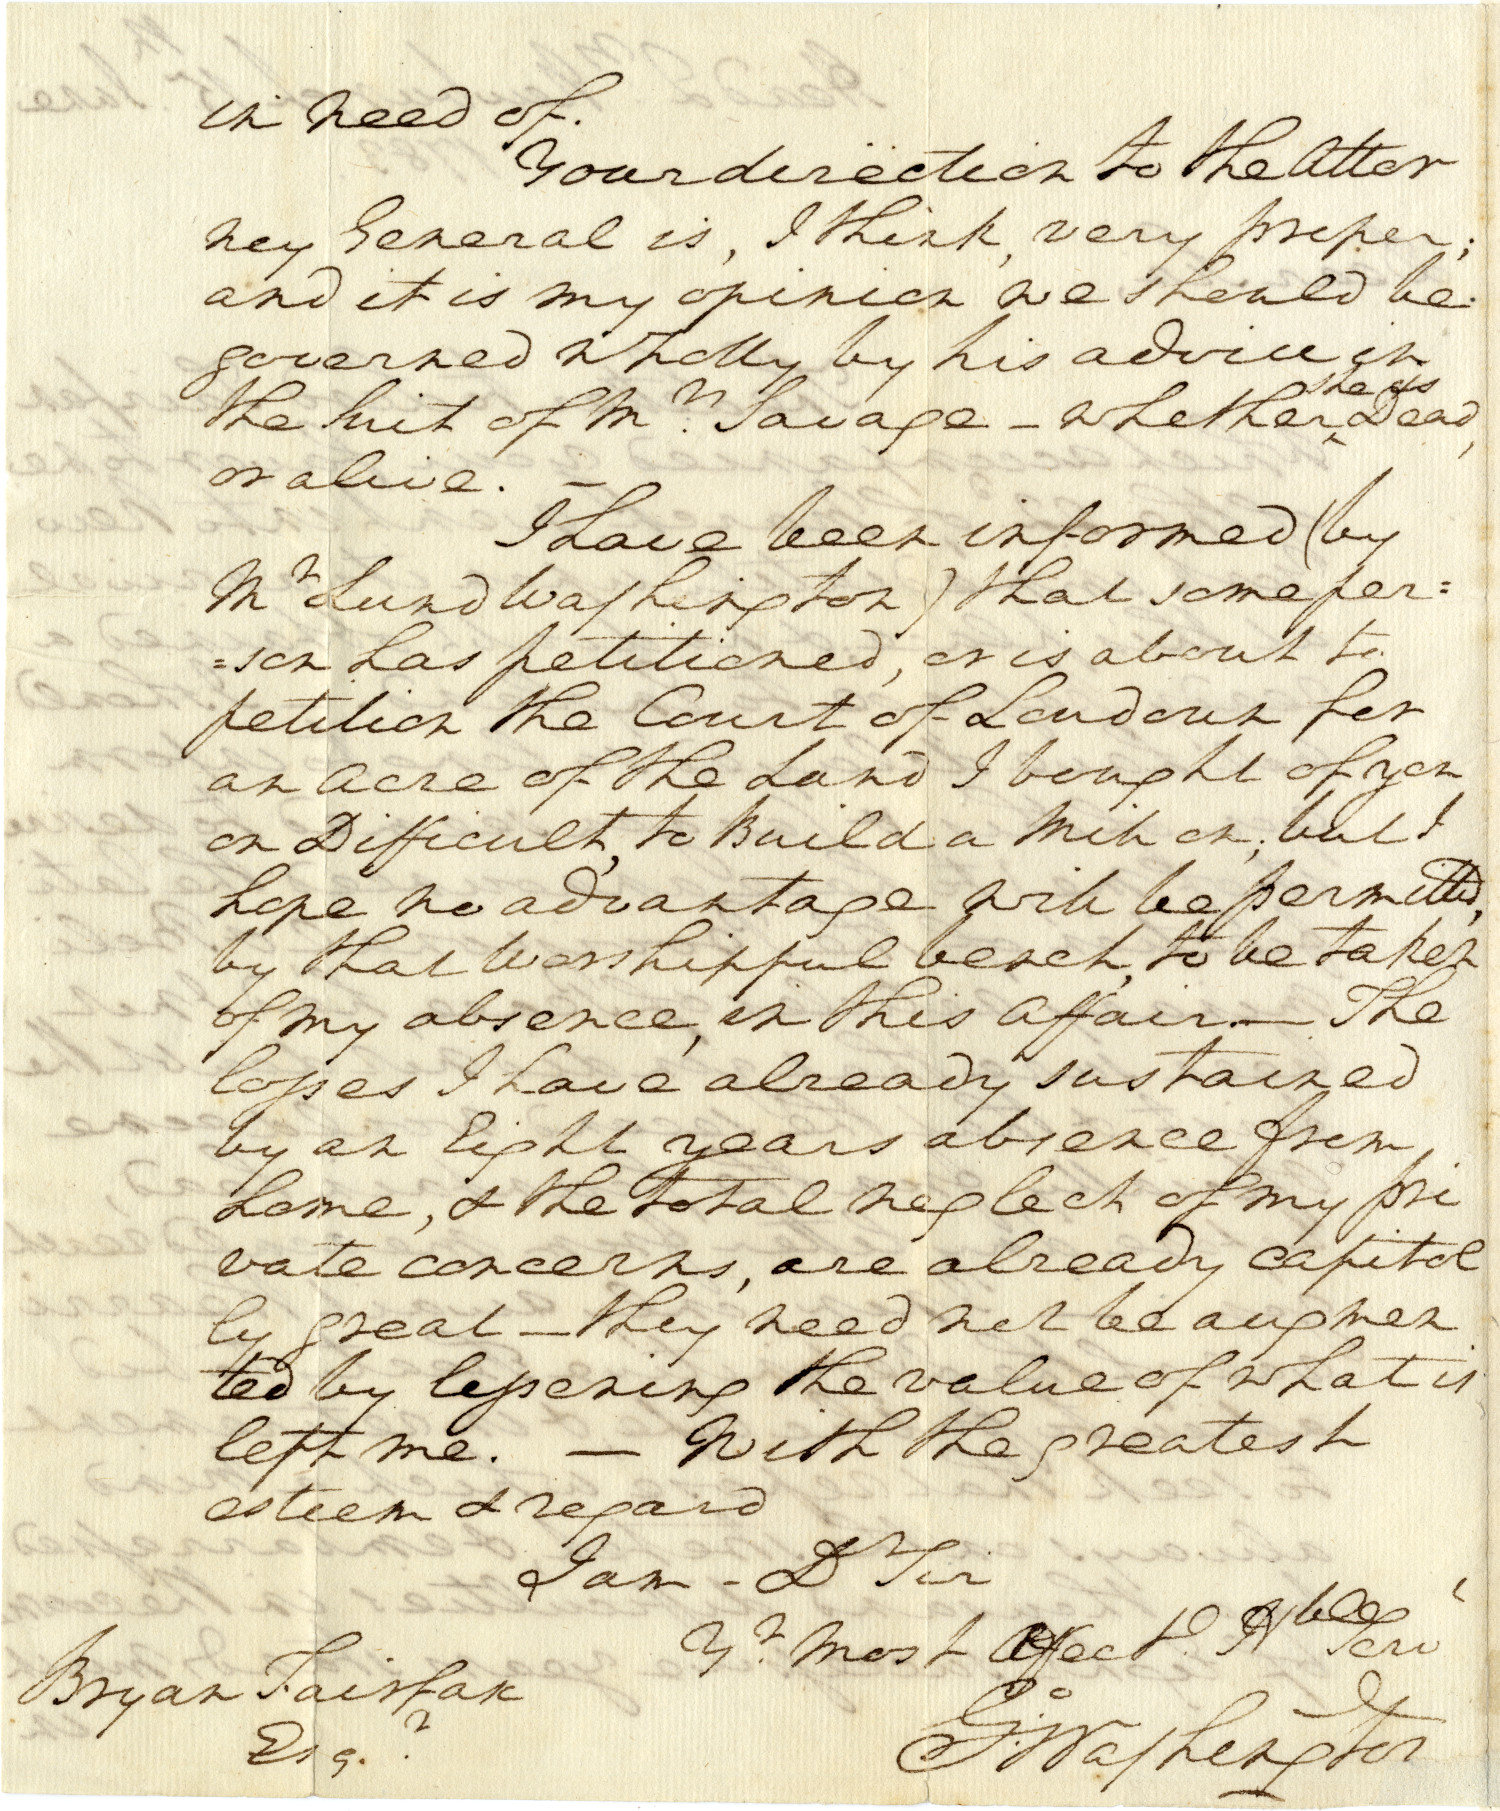 in need of.
Your direction to the Attor
ney General is, I think, very proper;
and it is my opinion we should be
governed wholly by his advice in
she is
the suit of Mrs. Savage – whether ^ Dead,
or alive. —
I have been informed (by
Mr Lund Washington) that some per=
=son has petitioned, or is about to
petition the Court of Loudoun for
an Acre of the Land I bought of you
on Difficult, to Build a Mill on; but I
hope no advantage will be permitted,
by that worshipful bench, to be taken
of my absence, in this affair. — The
losses I have already sustained
by an Eight years absence from
home, & the total neglect of my pri
vate concerns, are already capitol
ly great — they need not be augmen
ted by lessening the value of what is
left me. — With the greatest
esteem & regard
I am - Dr Sir
Yr. Most Affectt. Hble Serv
Go: Washington
Bryan Fairfax
Esqr.